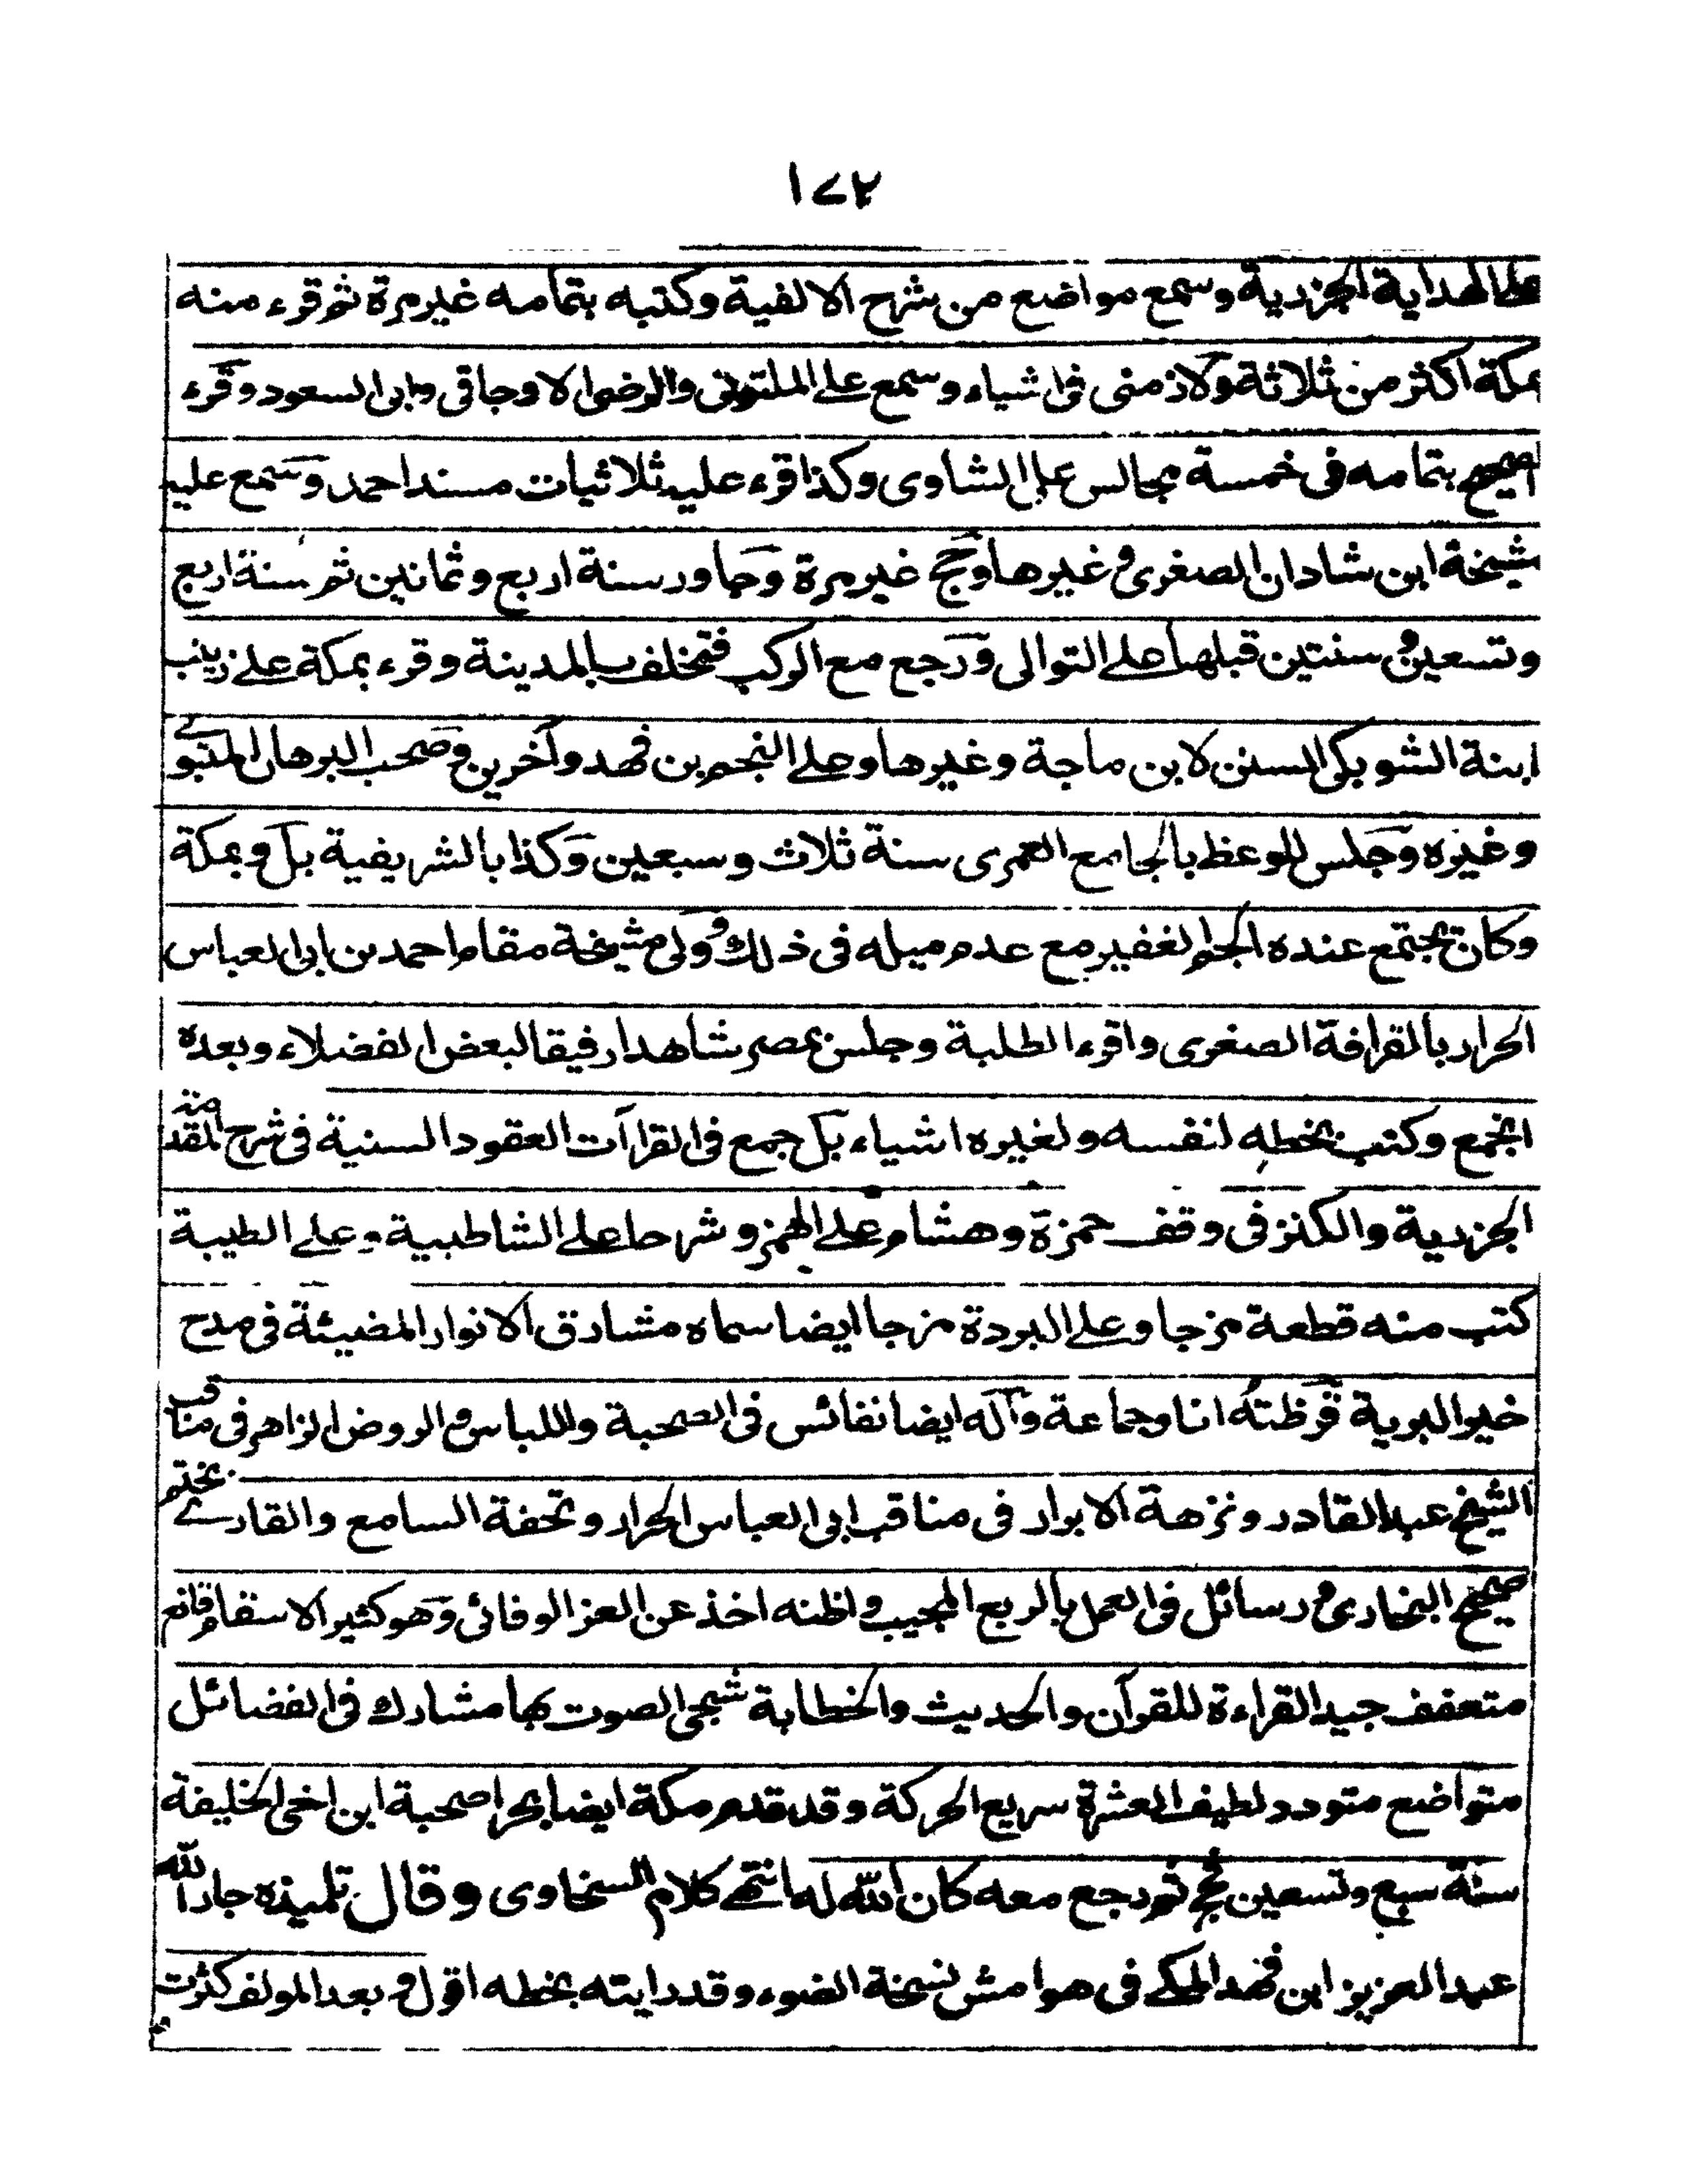 ١٧٢
على الهداية الجزرية وسمع مواضع من شرح الالفية وكتبه بتمامه غير مرة ثم قرء منه
بمكة اكثر من ثلاثة ولازمنى فى اشياء وسمع على الملتوتى والرضى الاوجاقى وابى السعود وقرء
الصحيح بتمامه فى خمسة مجالس على الشاوى وكذا قرء عليه ثلاثيات مسند احمد وسمع عليه
مشيخة ابن شادان الصغرى وغيرها وحج غير مرة وجاور سنة اربع وثمانين ثم سنة اربع
وتسعين وسنتين قبلها على التوالى ورجع مع الركب فتخلف بالمدينة وقرء بمكة على زينب
ابنة الشوبكى السنن لابن ماجة وغيرها وعلى النجم بن فهد وآخرين وصحب البرهان المتبولے
وغيره وجلس للوعظ بالجامع الغمرى سنة ثلاث وسبعين وكذا بالشريفية بل وبمكة
وكان يجتمع عنده الجم الغفير مع عدم ميله فى ذلك وولى مشيخة مقام احمد بن ابى العباس
الحرار بالقرافة الصغرى واقرء الطلبة وجلس بمصر شاهدا رفيقا لبعض الفضلاء وبعده
انجمع وكتب بخطه لنفسه ولغيره اشياء بل جمع فى القراآت العقود السنية فى شرح المقدمة
الجزرية والكنز فى وقف حمزة وهشام على الهمز وشرحا على الشاطبية وعلى الطيبة
كتب منه قطعة مزجا وعلى البردة مزجا ايضا سماه مشارق الانوار المضيئة فى مدح
خير البرية قرظته انا وجماعة وله ايضا نفائس فى الصحبة واللباس والروض الزاهر فى مناقب
الشيخ عبد القادر ونزهة الابرار فى مناقب ابى العباس الحرار وتحفة السامع والقارے بختم
صحيح البخارى ورسائل فى العمل بالربع المجيب واظنه اخذ عن العز الوفائى وهو كثير الاسقام قانع
متعفف جيد القراءة للقرآن والحديث والخطابة شجى الصوت بها مشارك فى الفضائل
متواضع متودد لطيف العشرة سريع الحركة وقد قدم مكة ايضا بحرا صحبة ابن اخى الخليفة
سنة سبع وتسعين فحج ثم رجع معه كان الله له انتهے كلام السخاوى وقال تلميذه جار الله
عبد العزيز ابن فهد المكے فى هوامش نسخة الضوء وقد رايته بخطه اقول وبعد المولف كثرت